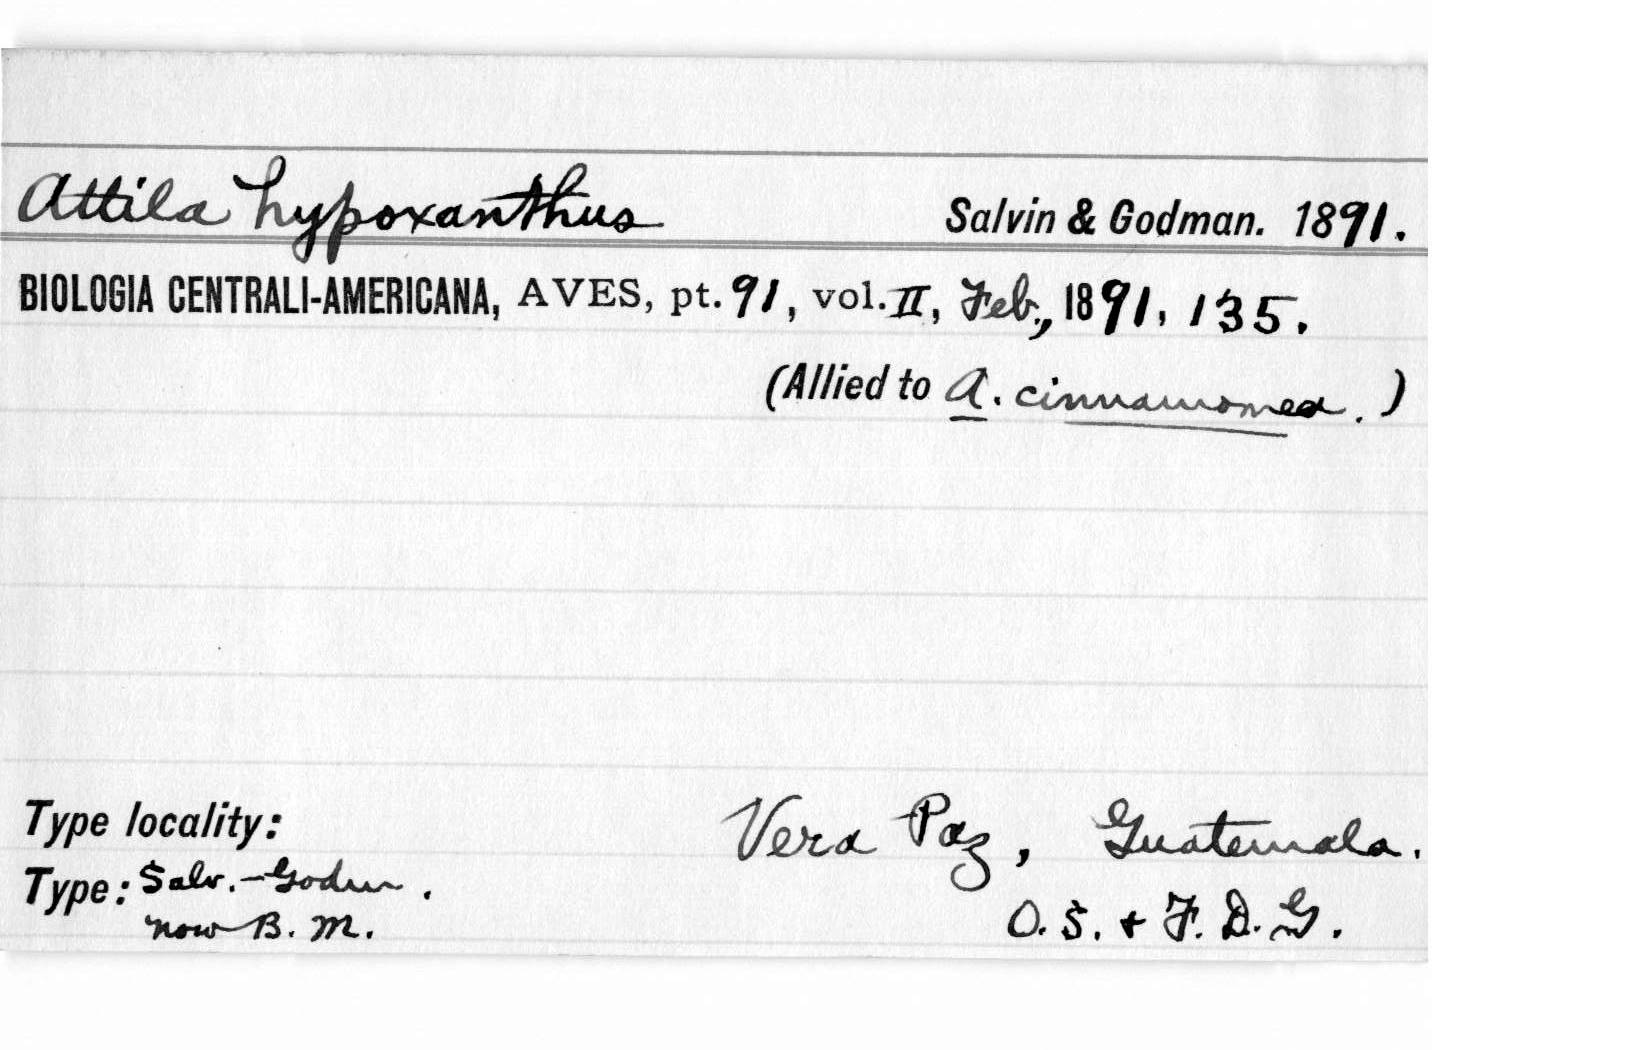 Attila hypoxanthus Salvin & Godman. 1891.
BIOLOGIA CENTRALI-AMERICANA, AVES, pt. 91, vol. II, Feb., 1891, 135.
(Allied to A. cinnamomea.)
Type locality: Vera Paz, Guatemala.
Type: Salv.-Godm.
now B. M. O. S. + F. D. G.